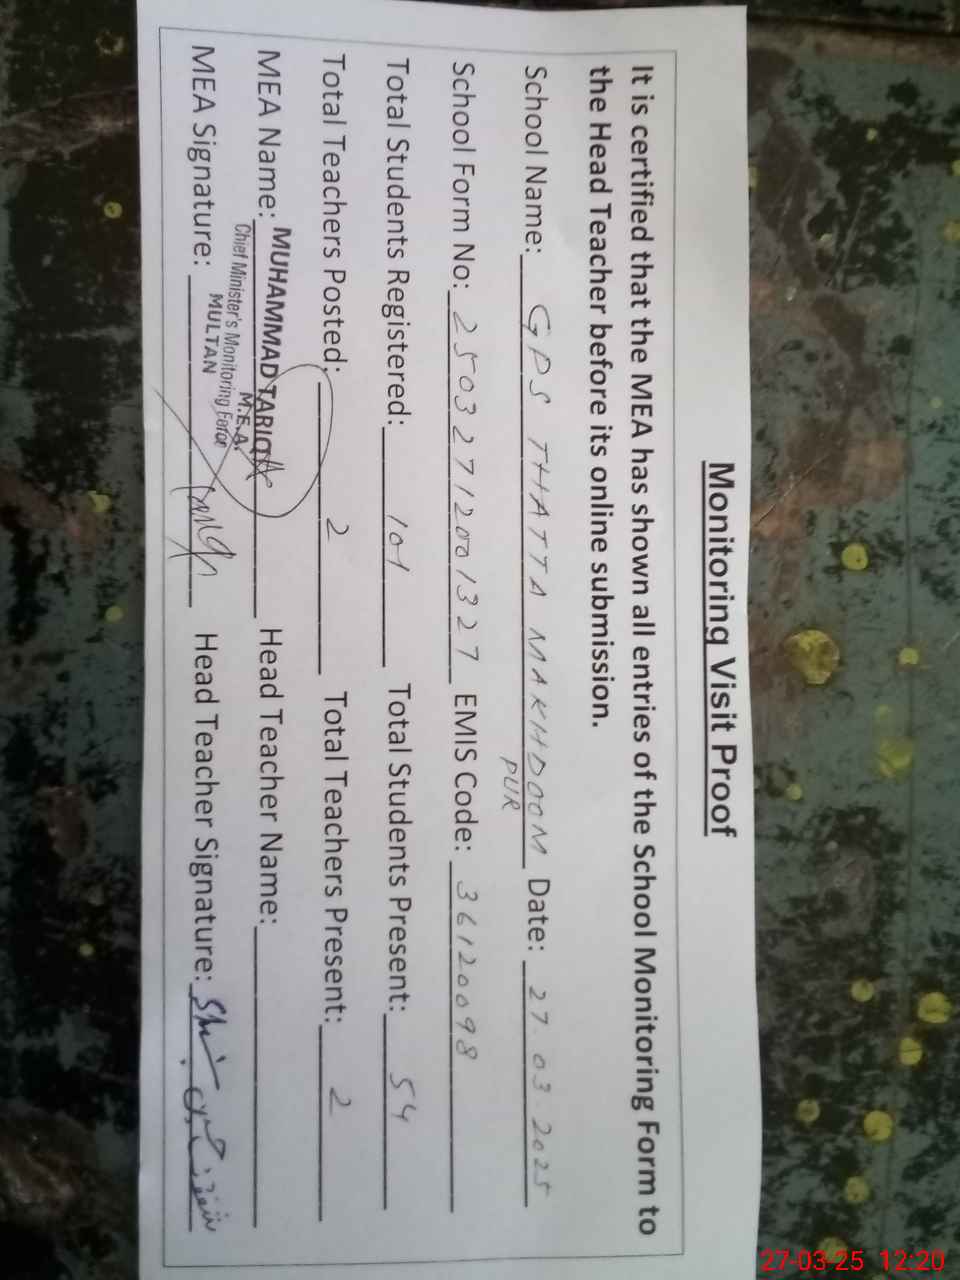 Monitoring Visit Proof
It is certified that the MEA has shown all entries of the School Monitoring Form to
the Head Teacher before its online submission.
School Name: GPS THATTA MAKHDOOM Date: 27.03.2025
PUR
School Form No: 25032712001327 EMIS Code: 36120098
Total Students Registered: 101 Total Students Present: 54
Total Teachers Posted: 2 Total Teachers Present: 2
MEA Name: MUHAMMAD TARIQ Head Teacher Name:
M.E.A.
Chief Minister's Monitoring Force
MULTAN
MEA Signature: Head Teacher Signature:
27-03-25 12:20